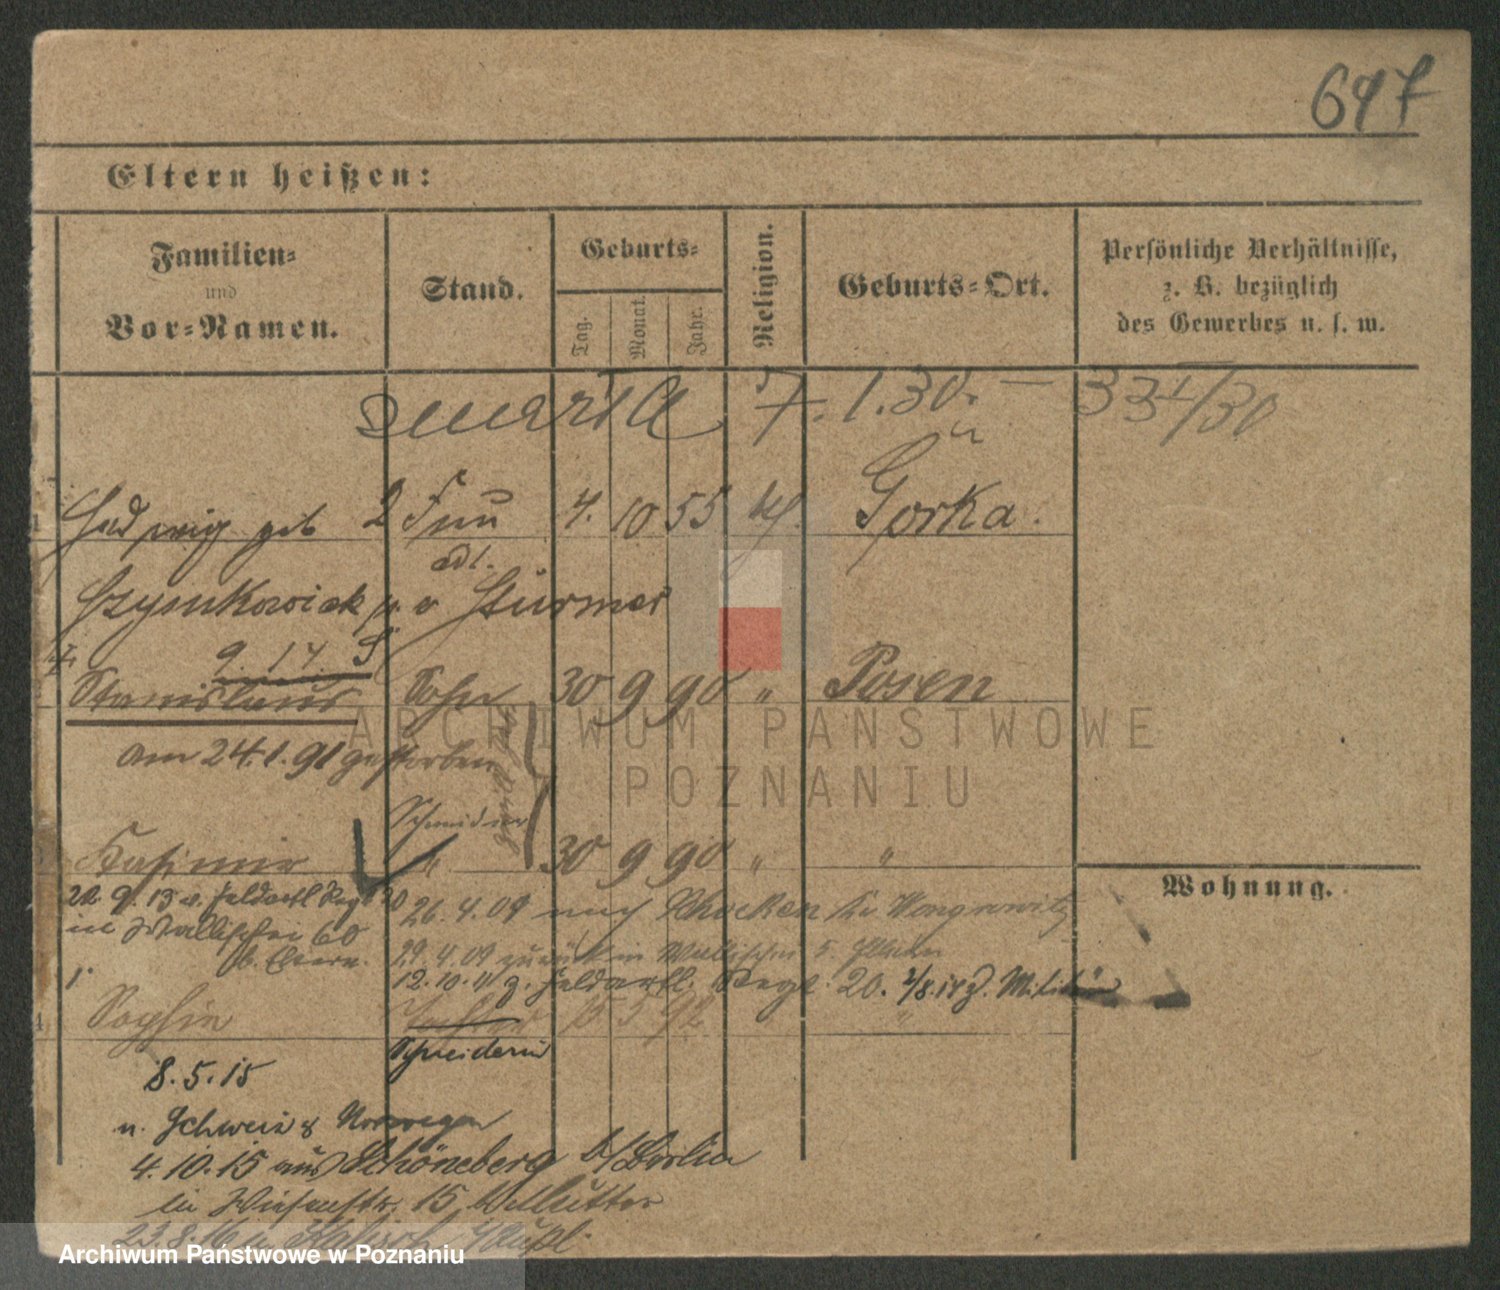 697
Eltern heißen:
Familien=
und
Vor=Namen.
Stand.
Geburts=
Tag.
Monat.
Jahr.
Religion.
Geburts=Ort.
Persönliche Verhältnisse,
z. B. bezüglich
des Gewerbes u. s. w.
7. 1. 30. — 331/30
Hedwig geb 2 Frau 4. 10 55 k. Gorka.
adl.
Szymkowiak v Stürmer
9. 14
Stanislaus Sohn 30 9 90 " Posen
am 24.1.91 gestorben
Schneider
Kasimir " 30 9 90 " "
22. 9. 13 v. Feldartl Regt 20
in Wallischei 60
b. Eltern.
26. 4. 09 nach Schocken Kr Wongrowitz
29. 4. 09 zurück in Wallischei 5.
12. 10. 11 z. Feldartl. Regt. 20. 2/8.14 z. Militär
Sophie Tochter 15 5 92 "
Schneiderin
8. 5. 15
n. Schweiz & Norwegen
4. 10. 15 aus Schöneberg b/Berlin
in Wiesenstr. 15 b Mutter
23. 8. 16
ARCHIWUM PAŃSTWOWE
W POZNANIU
Archiwum Państwowe w Poznaniu